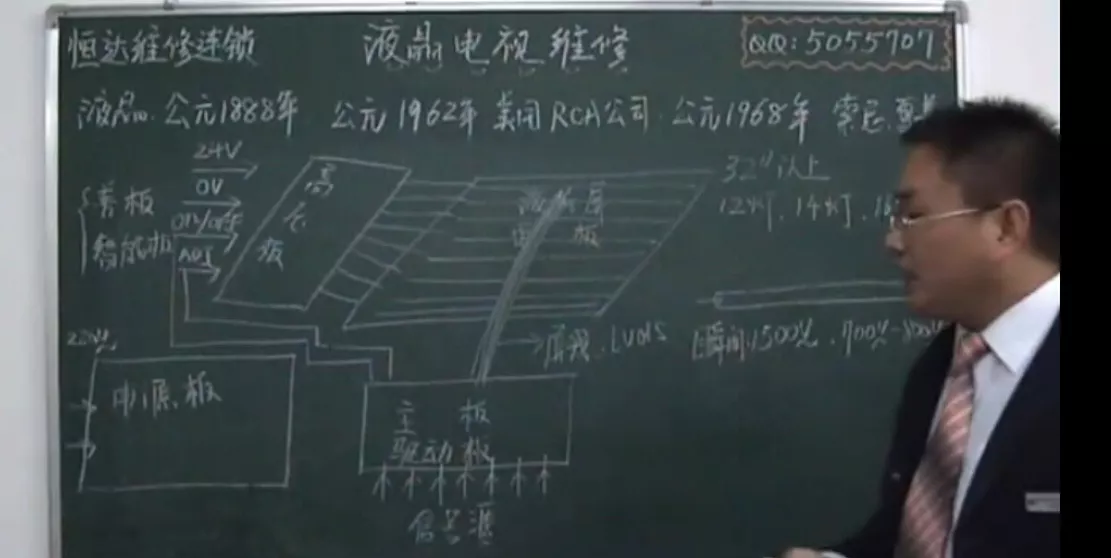 恒达维修连锁 液晶电视维修 QQ:5055707
液晶 公元1888年 公元1962年 美国RCA公司 公元1968年
24V
0V
ON/OFF
ADJ
背板
智能板
高压板
32"以上
12灯、14灯、
屏线 LVDS
瞬间1500V、700V-800V
220V
电源板
主板
驱动板
信号源